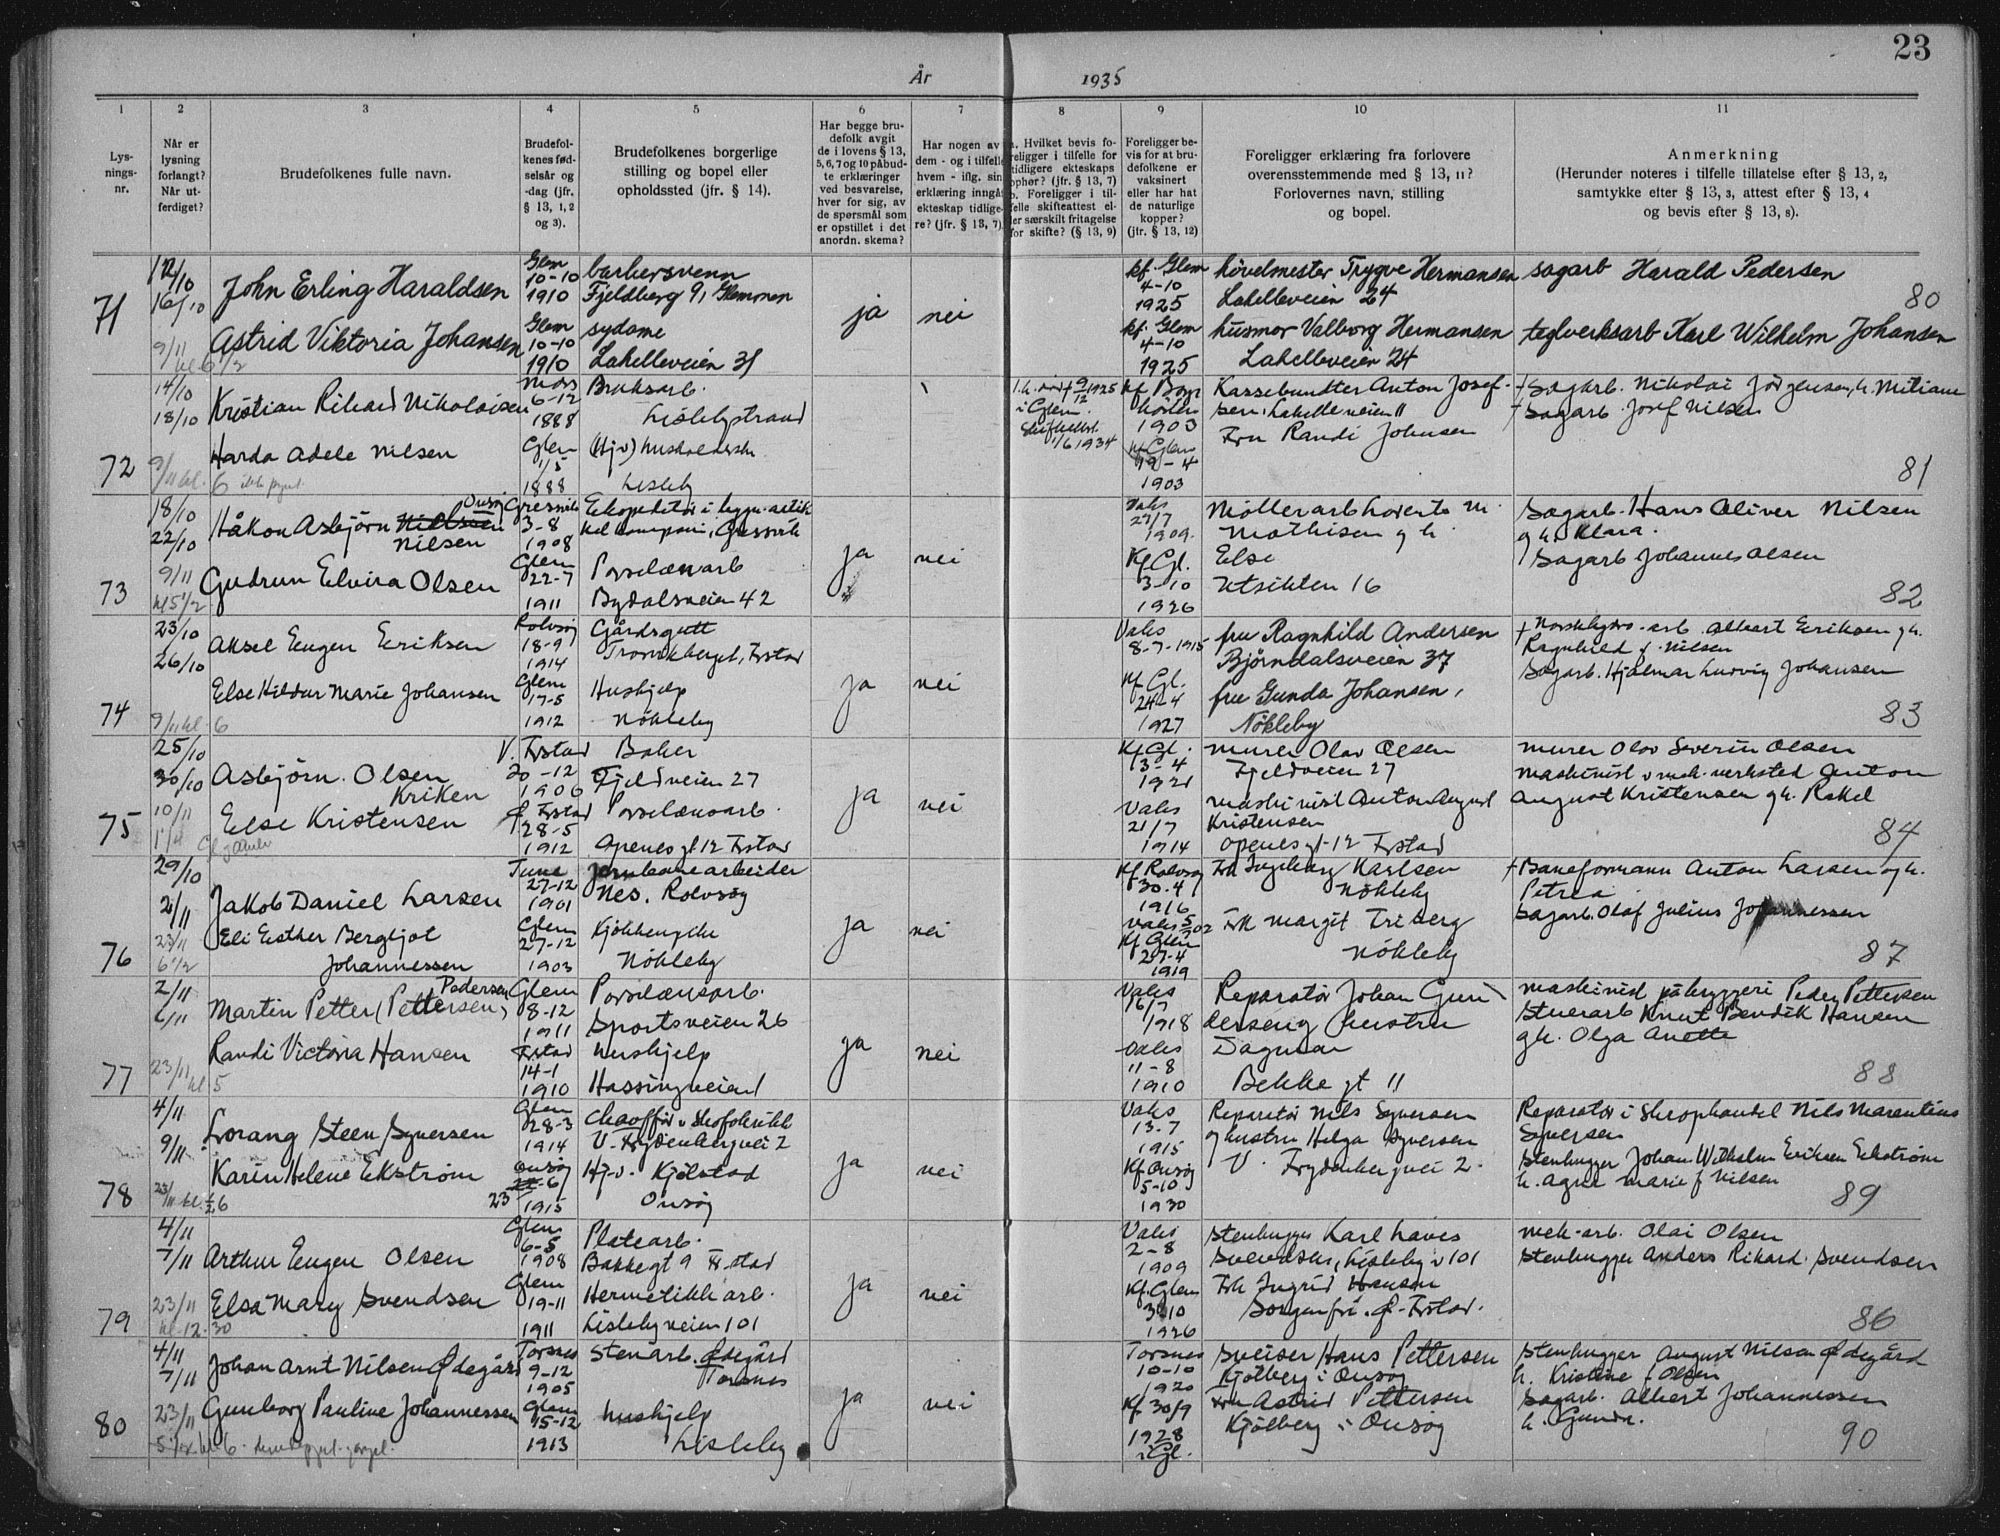 23
År 1935
1 2 3 4 5 6 7 8 9 10 11
Lys-
nings-
nr.
Når er
lysning
forlangt?
Når ut-
ferdiget?
Brudefolkenes fulle navn.
Brudefol-
kenes fød-
selsår og
-dag (jfr.
§ 13, 1, 2
og 3).
Brudefolkenes borgerlige
stilling og bopel eller
opholdssted (jfr. § 14).
Har begge bru-
defolk avgit
de i lovens § 13,
5, 6, 7 og 10 påbud-
te erklæringer
ved besvarelse,
hver for sig, av
de spørsmål som
er opstillet i det
anordn. skema?
Har nogen av
dem - og i tilfelle
hvem - iflg. sin
erklæring inngått
ekteskap tidlige-
re? (jfr. § 13, 7)
a. Hvilket bevis fo-
religger i tilfelle for
tidligere ekteskaps
ophør? (jfr. § 13, 7)
b. Foreligger i til-
felle skifteattest el-
ler særskilt fritagelse
for skifte? (§ 13, 9)
Foreligger be-
vis for at bru-
defolkene er
vaksinert
eller har hat
de naturlige
kopper?
(jfr. § 13, 12)
Foreligger erklæring fra forlovere
overensstemmende med § 13, 11?
Forlovernes navn, stilling
og bopel.
Anmerkning
(Herunder noteres i tilfelle tillatelse efter § 13, 2,
samtykke efter § 13, 3, attest efter § 13, 4
og bevis efter § 13, 8).
71
12/10
16/10
9/11
kl 6 1/2
John Erling Haraldsen
Astrid Viktoria Johansen
Glem
10-10
1910
Glem
10-10
1910
barbersvenn
Fjeldberg 9, Glemmen
sydame
Lahelleveien 31
ja
nei
kf. Glem
4-10
1925
kf. Glem
4-10
1925
høvelmester Trygve Hermansen
Lahelleveien 24
husmor Valborg Hermansen
Lahelleveien 24
sagarb Harald Pedersen
80
teglverksarb Karl Wilhelm Johansen
72
14/10
18/10
9/11 kl.
6 ikke pynt
Kristian Rikard Nikolaisen
Harda Adele Nilsen
Moss
6-12
1888
Glem
1/5
1888
Bruksarb.
Lislebystrand
(Hj.v)
Lisleby
9/12 1925
i Glem.
1/6 1934
1903
kf Glem
19-4
1903
Kassebundter Anton Josef-
sen, Lahelleveien 11
Fru Randi Johnsen
+ Sagarb. Nikolai Jørgensen, h.
+ Sagarb. Josef Nilsen
81
73
18/10
22/10
9/11
kl 5 1/2
Håkon Asbjørn Nielsen
Nilsen
Gudrun Elvira Olsen
Onsøy
3-8
1908
Glem
22-7
1911
Gressvik
Porselænarb
Bydalsveien 42
ja
nei
Vaks
27/7
1909.
Kf Gl.
3-10
1926
Møllerarb M.
Mathisen g h.
Else
Utsikten 16
Sagarb. Hans Oliver Nilsen
g h. Klara.
Sagarb Johannes Olsen
82
74
23/10
26/10
9/11 kl. 6
Aksel Eugen Eriksen
Else Hildur Marie Johansen
Rolvsøy
18-9
1914
Glem
17-5
1912
Gårdsgutt
Trosvikberget, Frstad
Hushjelp
Nøkleby
ja
nei
Vaks
8-7-1915
Kf Gl.
24-4
1927
fru Ragnhild Andersen
Bjørndalsveien 37
fru Gunda Johansen,
Nøkleby
+ Norskhydro-arb. Albert Eriksen g h.
Ragnhild f. Nilsen
Sagarb. Hjalmar Ludvig Johansen
83
75
25/10
30/10
10/11
Asbjørn Olsen
Kriken
Else Kristensen
V. Frstad
20-12
1906
Ø Frstad
28-5
1912
Baker
Fjeldveien 27
Porselænsarb.
Apenes gt 12 Frstad
ja
nei
Kf Gl.
13-4
1921
Vaks
21/7
1914
Murer Olav Olsen
Fjeldveien 27
Maskinist Anton August
Kristensen
Apenes gt-12 Frstad
Murer Olav Severin Olsen
Maskinist v mek. verksted Anton
August Kristensen g h. Rakel
84
76
29/10
2/11
23/11
6 1/2
Jakob Daniel Larsen
Eli Esther Bergljot
Johannessen
Tune
27-12
1901
Glem
27-12
1903
Jernbanearbeider
Nes. Rolvsøy
Kjøkkenpike
Nøkleby
ja
nei
Kf Rolvsøy
30-4
1916
Kf Glem
27-4
1919
Frk Ingeborg Karlsen
Nøkleby
Frk Margit Friberg
Nøkleby
+ Baneformann Anton Larsen og h.
Petrea
Sagarb. Olaf Julius Johannessen
87
77
2/11
6/11
23/11 kl 5
Martin Petter (Pettersen)
Pedersen
Randi Victoria Hansen
Glem
8-12
1911
Frstad
14-1
1910
Porselænsarb.
Sportsveien 26
Hushjelp
Hassingveien 1
ja
nei
Vaks
16/7
1918
Vaks
11-8
1910
Reparatør Johan Gun-
dersen g hustru
Dagmar
Bekke gt 11
Maskinist på bryggeri Peder Pettersen
Stuerarb Knut Bendik Hansen
g h. Olga Anette
88
78
4/11
9/11
23/11 kl. 6
Lorang Steen Syversen
Karin Helene Ekstrøm
Glem
28-3
1914
Onsøy
22-6
23
1915
Chauffør v Skofabrikk
V. Frydenbergvei 2
Hj.v. Kjølstad
Onsøy
ja
nei
Vaks
13-7
1915
Kf Onsøy
5-10
1930
Reparatør Nils Syversen
g hustru Helga Syversen
V. Frydenbergvei 2.
Reparatør i Skraphandel Nils Marentius
Syversen
Stenhugger Johan Wilhelm Eriksen Ekstrøm
h. Agne Marie f Nilsen
89
79
4/11
7/11
23/11
kl-12.30
Arthur Eugen Olsen
Elsa Mary Svendsen
Glem
6-5
1908
Glem
19-11
1911
Platearb.
Bakkegt 9 Frstad
Hermetikk arb.
Lislebyveien 101
ja
nei
Vaks
2-8
1909
Kf. Glem
3-10
1926
Stenhugger Karl Laves
Svendsen, Lisleby v 101
Frk Ingrid Hansen
Sorgenfri. Ø-Frstad.
Mek-arb. Olai Olsen
Stenhugger Anders Rikard Svendsen
86
80
4/11
7/11
23/11
Johan Arnt Nilsen Ødegård
Gunborg Pauline Johannessen
Torsnes
9-12
1905
Glem
15-12
1913
Stenarb. Ødegård
Torsnes
Hushjelp
Lisleby
ja
nei
Torsnes
10-10
1920
Kf 30/9
1928
i Gl.
Sveiser Hans Pettersen
Kjølberg i Onsøy
Fru Astrid Pettersen
Kjølberg i Onsøy
Stenhugger August Nilsen Ødegård
h. Kristine f Olsen
Sagarb. Albert Johannessen
h. Gunda.
90